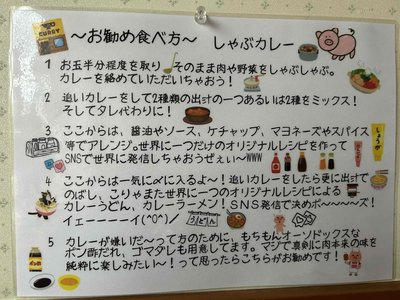 CURRY
～お勧め食べ方～ しゃぶカレー
1 お玉半分程度を取り そのまま肉や野菜をしゃぶしゃぶ。
カレーを絡めていただいちゃおう!
2 追いカレーをして2種類の出汁の一つあるいは2種をミックス!
そしてタレ代わりに!
3 ここからは、醤油やソース、ケチャップ、マヨネーズやスパイス
等でアレンジ。世界に一つだけのオリジナルレシピを作って
SNSで世界に発信しちゃおうぜぇぃ～WWW
しょうが
4 ここからは一気に〆に入るよ～! 追いカレーをしたら更に出汁で
のばし、こりゃまた世界に一つのオリジナルレシピによる
カレーうどん、カレーラーメン!SNS発信で決めポ～～～～ズ!
イェーーーーイ(^O^)／
5 カレーが嫌いだ～って方のために、もちもんオーソドックスな
ポン酢だれ、ゴマダレも用意してます。マジで真剣に肉本来の味を
純粋に楽しみたい～!って思ったらこちらがお勧めです!